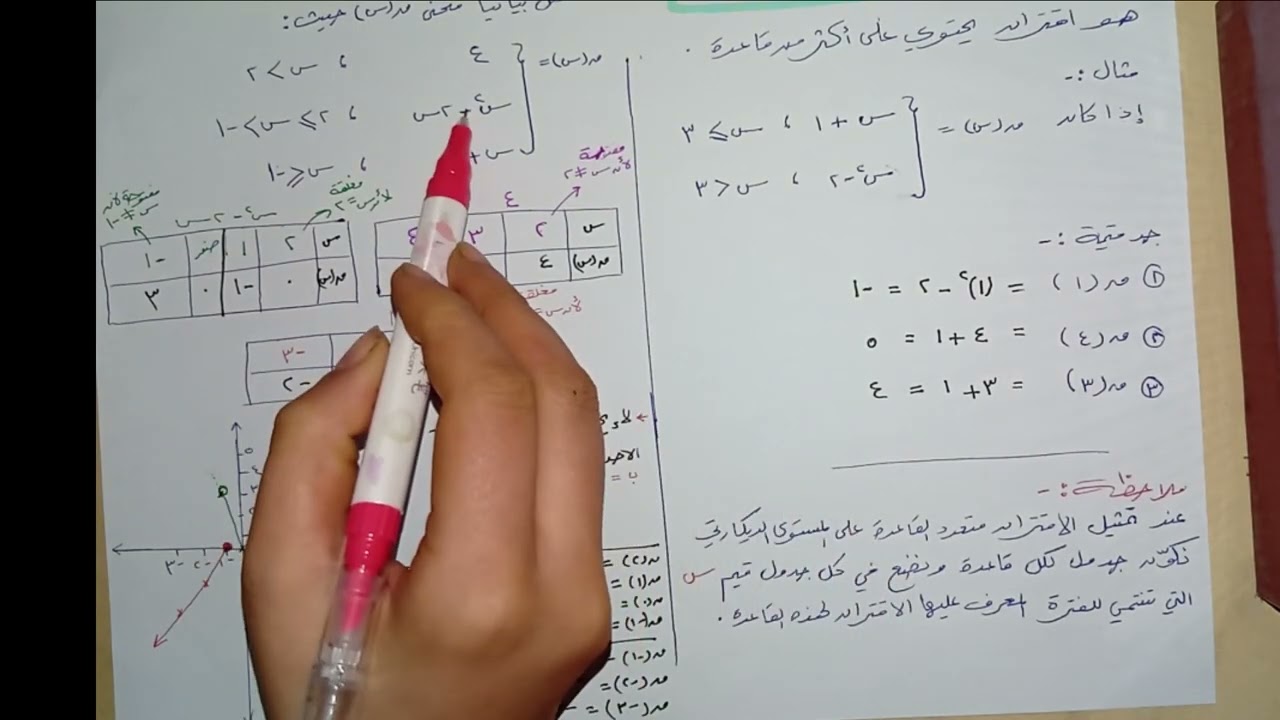 هو اقتران يحتوي على أكثر من قاعدة .
مثال :-
إذا كان ق(س) = { س + ١ ، س ≥ ٣
س٢ - ٢ ، س < ٣
جد قيمة :-
① ق(١) = (١)٢ - ٢ = -١
② ق(٤) = ٤ + ١ = ٥
③ ق(٣) = ٣ + ١ = ٤
ملاحظة :-
عند تمثيل الاقتران متعدد القاعدة على المستوى الديكارتي
نكوّن جدول لكل قاعدة ونضع في كل جدول قيم س
التي تنتمي للفترة المعرف عليها الاقتران لهذه القاعدة .
بيانياً منحنى ق(س) حيث :
ق(س) = { ٤ ، س > ٢
س٢ - ٢س ، -١ < س ≤ ٢
س + ، س ≤ -١
مفتوحة
لأن س ≠ ٢
٤
س ٢ ٣ ٤
ق(س) ٤
مغلقة
لأن س =
مفتوحة لأن
س ≠ -١
س٢ - ٢س
مغلقة
لأن س = ٢
س ٢ ١ صفر -١
ق(س) ٠ -١ ٠ ٣
-٣
-٢
٥
٤
٣
-١ -٢ -٣
ب =
ق(٢) =
ق(١) =
ق(٠) =
ق(-١) =
ق(-١) =
ق(-٢) =
ق(-٣) = -